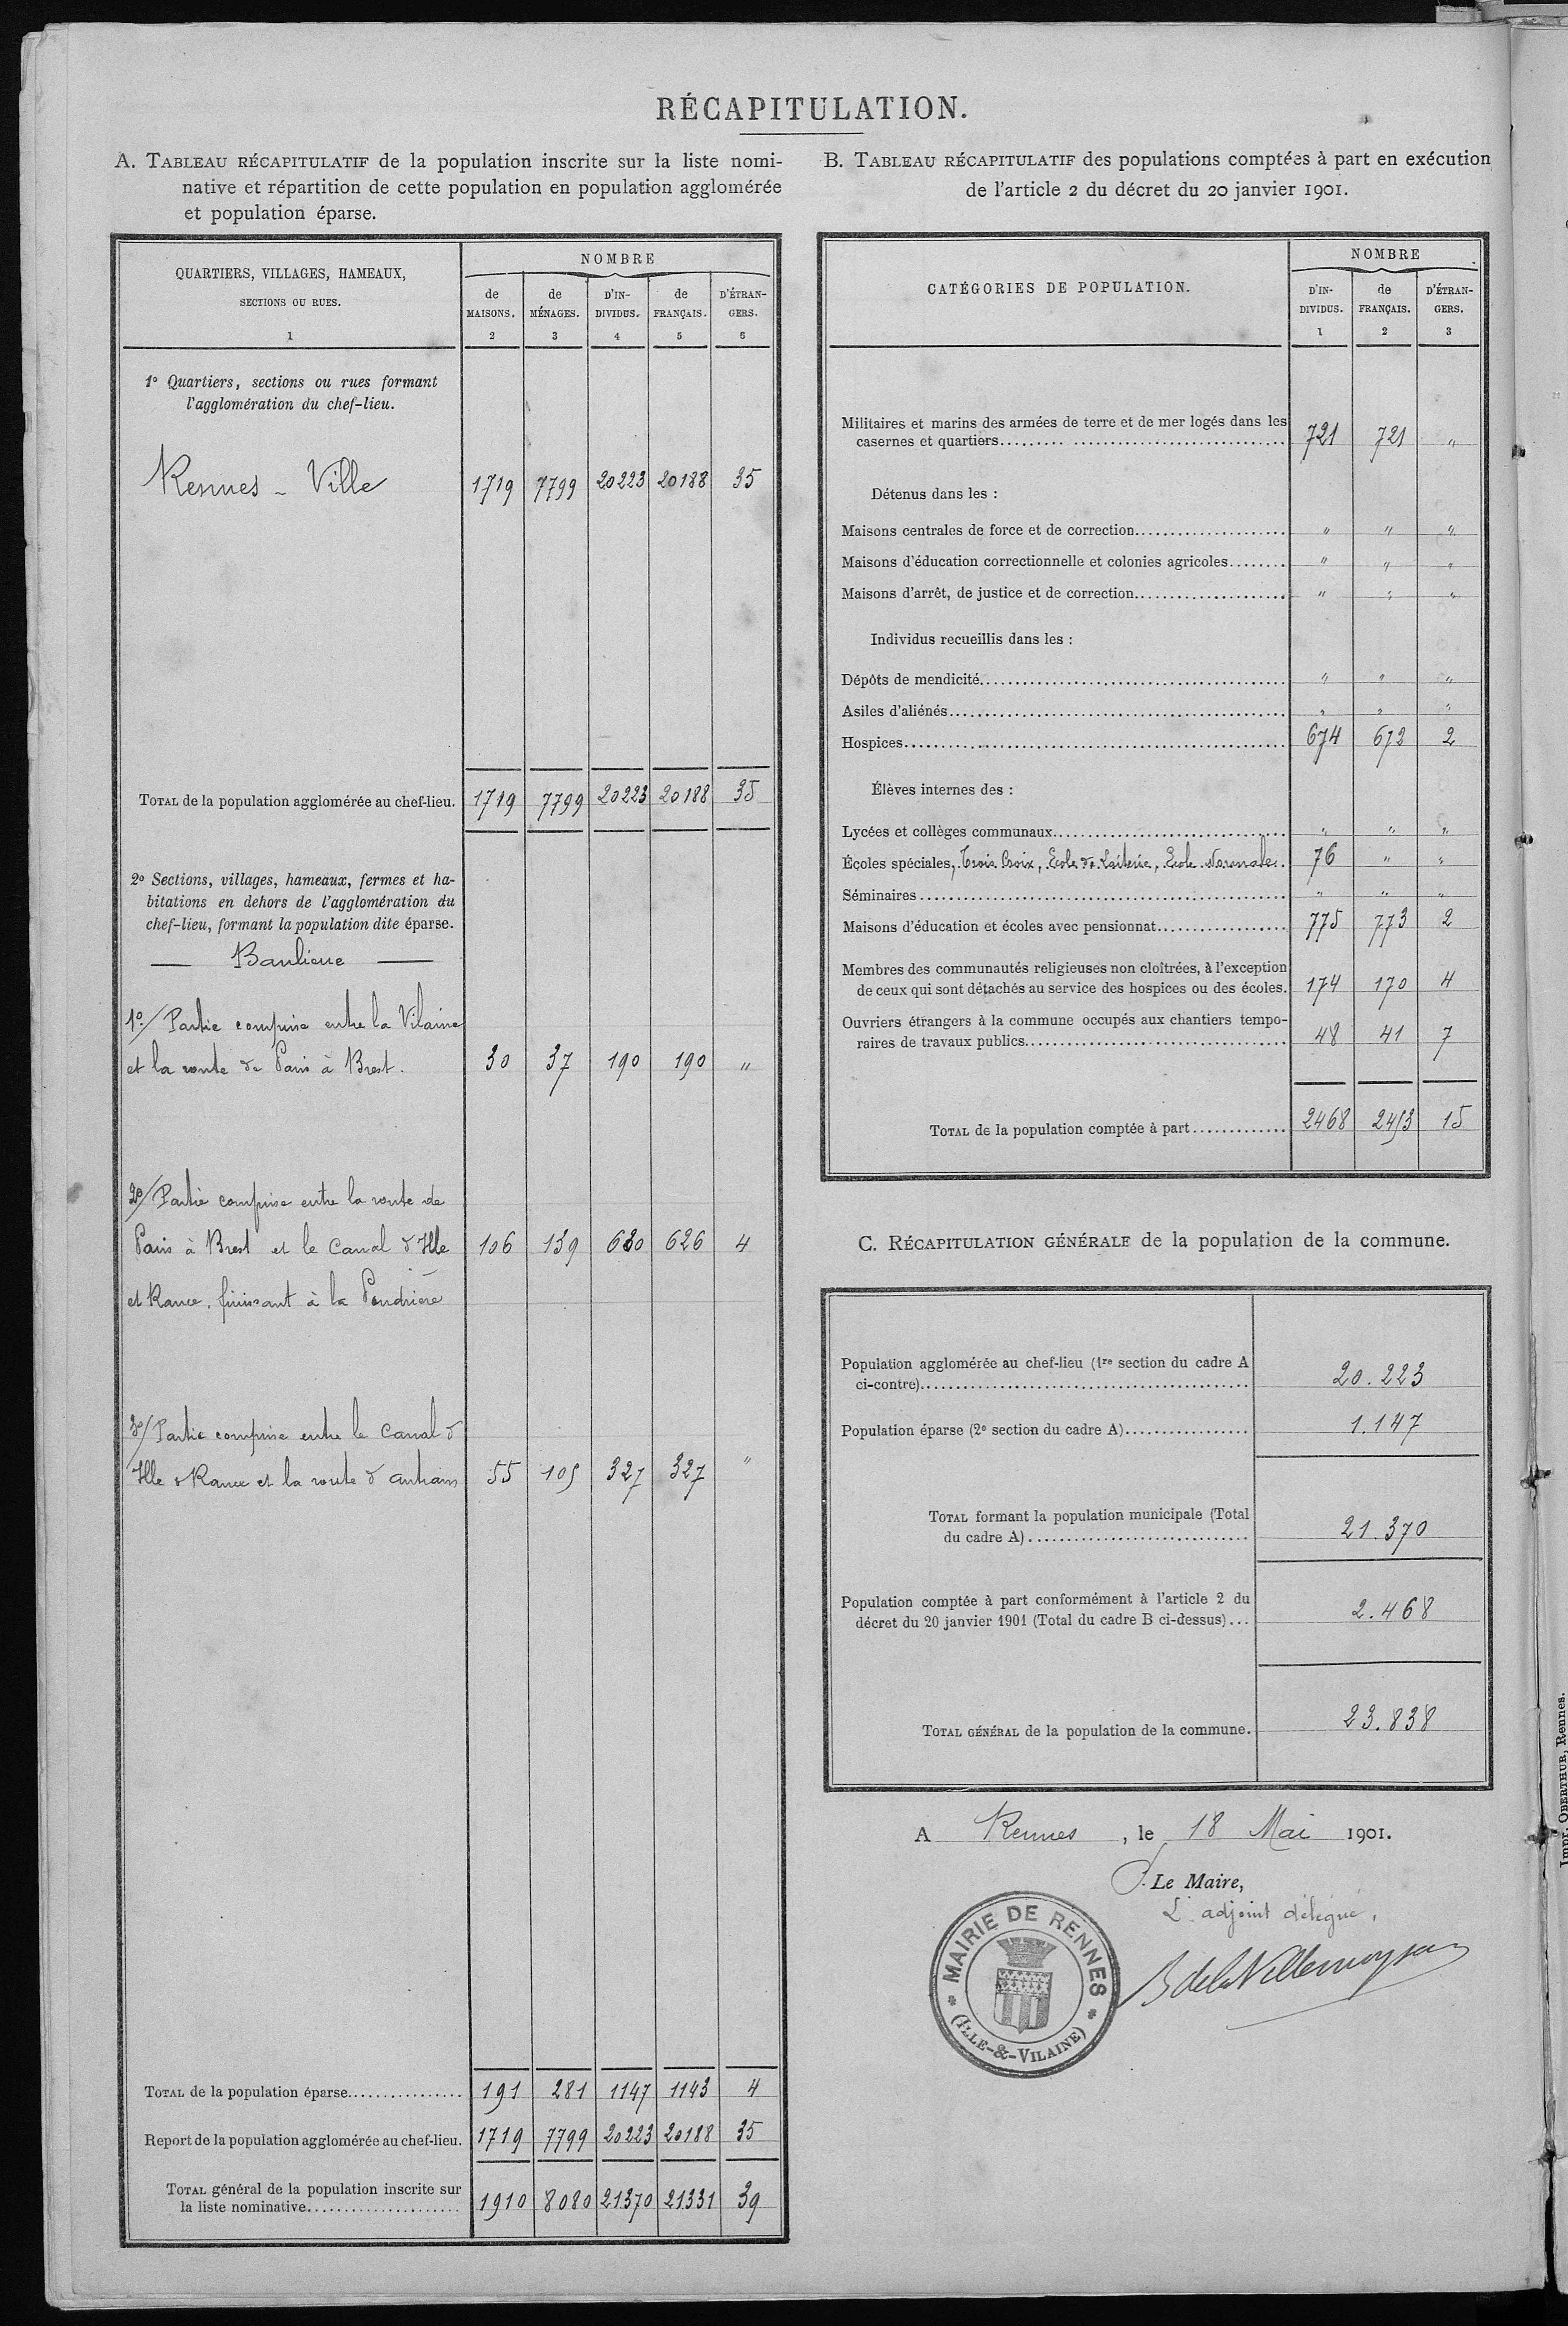 RÉCAPITULATION.
A. TABLEAU RÉCAPITULATIF de la population inscrite sur la liste nomi-
native et répartition de cette population en population agglomérée
et population éparse.
QUARTIERS, VILLAGES, HAMEAUX,
SECTIONS OU RUES.
1
NOMBRE
de MAISONS. 2
de MÉNAGES. 3
D'IN-DIVIDUS. 4
de FRANÇAIS. 5
D'ÉTRAN-GERS. 6
1º Quartiers, sections ou rues formant
l'agglomération du chef-lieu.
Rennes - Ville 1719 7799 20223 20188 35
TOTAL de la population agglomérée au chef-lieu. 1719 7799 20223 20188 35
2º Sections, villages, hameaux, fermes et ha-
bitations en dehors de l'agglomération du
chef-lieu, formant la population dite éparse.
— Banlieue —
1º/ Partie comprise entre la Vilaine
et la route de Paris à Brest. 30 37 190 190 "
2º/ Partie comprise entre la route de
Paris à Brest et le Canal d'Ille 106 139 630 626 4
et Rance, finissant à la
3º/ Partie comprise entre le Canal d
Ille & Rance et la route d'antrain 55 105 327 327 "
TOTAL de la population éparse................ 191 281 1147 1143 4
Report de la population agglomérée au chef-lieu. 1719 7799 20223 20188 35
TOTAL général de la population inscrite sur
la liste nominative..................... 1910 8080 21370 21331 39
B. TABLEAU RÉCAPITULATIF des populations comptées à part en exécution
de l'article 2 du décret du 20 janvier 1901.
CATÉGORIES DE POPULATION.
NOMBRE
D'IN-DIVIDUS. 1
de FRANÇAIS. 2
D'ÉTRAN-GERS. 3
Militaires et marins des armées de terre et de mer logés dans les
casernes et quartiers........ 721 721 "
Détenus dans les :
Maisons centrales de force et de correction........ " " "
Maisons d'éducation correctionnelle et colonies agricoles........ " " "
Maisons d'arrêt, de justice et de correction........ " " "
Individus recueillis dans les :
Dépôts de mendicité........ " " "
Asiles d'aliénés........ " " "
Hospices........ 674 672 2
Élèves internes des :
Lycées et collèges communaux........ " " "
Écoles spéciales, Trois Croix, Ecole de Laiterie, Ecole Normale. 76 " "
Séminaires........ " " "
Maisons d'éducation et écoles avec pensionnat........ 775 773 2
Membres des communautés religieuses non cloîtrées, à l'exception
de ceux qui sont détachés au service des hospices ou des écoles. 174 170 4
Ouvriers étrangers à la commune occupés aux chantiers tempo-
raires de travaux publics........ 48 41 7
TOTAL de la population comptée à part........ 2468 2453 15
C. RÉCAPITULATION GÉNÉRALE de la population de la commune.
Population agglomérée au chef-lieu (1re section du cadre A
ci-contre)........ 20.223
Population éparse (2e section du cadre A)........ 1.147
TOTAL formant la population municipale (Total
du cadre A)........ 21.370
Population comptée à part conformément à l'article 2 du
décret du 20 janvier 1901 (Total du cadre B ci-dessus)... 2.468
TOTAL GÉNÉRAL de la population de la commune. 23.838
A Rennes, le 18 Mai 1901.
P. Le Maire,
L'adjoint délégué,
MAIRIE DE RENNES
(ILLE-&-VILAINE)
Impr. OBERTHUR, Rennes.